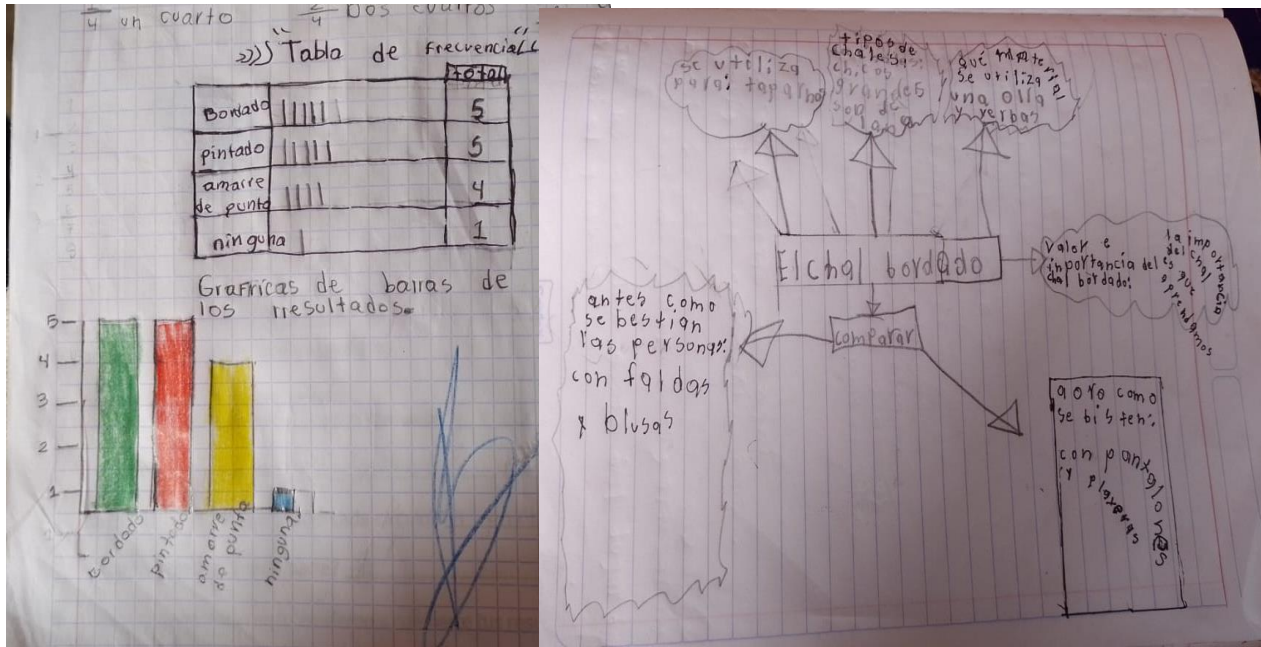 4 un cuarto 4 Dos cuartos
"Tabla de Frecuencia"
total
Bordado 5
pintado 5
amarre
de punta 4
ninguna 1
Grafricas de barras de
los rresultados.
5
4
3
2
1
bordado
pintado
amarre
de punta
ninguna
se utiliza
para: taparno
tipos de
chales:
chicos
grandes
son de
qué material
se utiliza
una olla
y yerbas
El chal bordado
valor e
importancia del
chal bordado:
la importancia
del chal
es que
aprendamos
comparar
antes como
se bestian
las personas:
con faldas
y blusas
aora como
se bisten:
con pantalones
y playeras